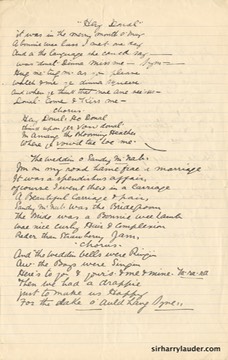 "Hey Donal"
it was in the merry month o' May
A bonnie wee lass I met one day
And a' the language she could say
was dinna Miss me
Hug me till me as you please
And when ye think that nae ane sees
Donal Come & Kiss me
Chorus.
Hey Donal Ho Donal
think upon yer vow donal.
In among the blooming Heather
Where ye vow'd tae loe me.
The weddin o Sandy McNab.
I'm on my road hame frae a marriage
It was a splendid affair,
of course I went there in a Carriage
A Beautiful Carriage & pair,
Sandy McNab was the Bridegroom
the Bride was a Bonnie wee lamb
wae nice curly Hair & Complexion
Reder than Strawberry Jam,
Chorus.
And the wedden bells were Ringin
Aw the Boys were Singin
Here's to you & yours & me & mine. Ta-ra-ra
Then we had a drappie
just to make us Happy
For the sake o Auld Lang Syne.
sirharrylauder.com